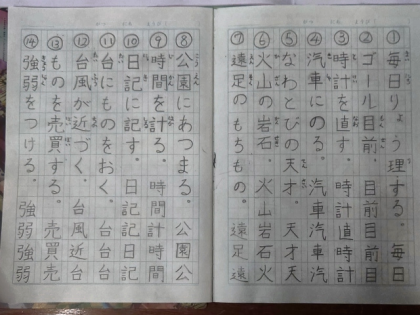 ①毎日りょう理する。毎日
②ゴール目前。目前目前
③時計を直す。時計時計
④汽車にのる。汽車汽車
⑤なわとびの天才。天才天
⑥火山の岩石。火山岩石火
⑦遠足のもちもの。遠足遠
⑧公園にあつまる。公園公
⑨時間を計る。時間計時間
⑩日記に記す。日記日記
⑪台にものをおく。台台台
⑫台風が近づく。台風近台
⑬ものを売買する。売買売
⑭強弱をつける。強弱強弱